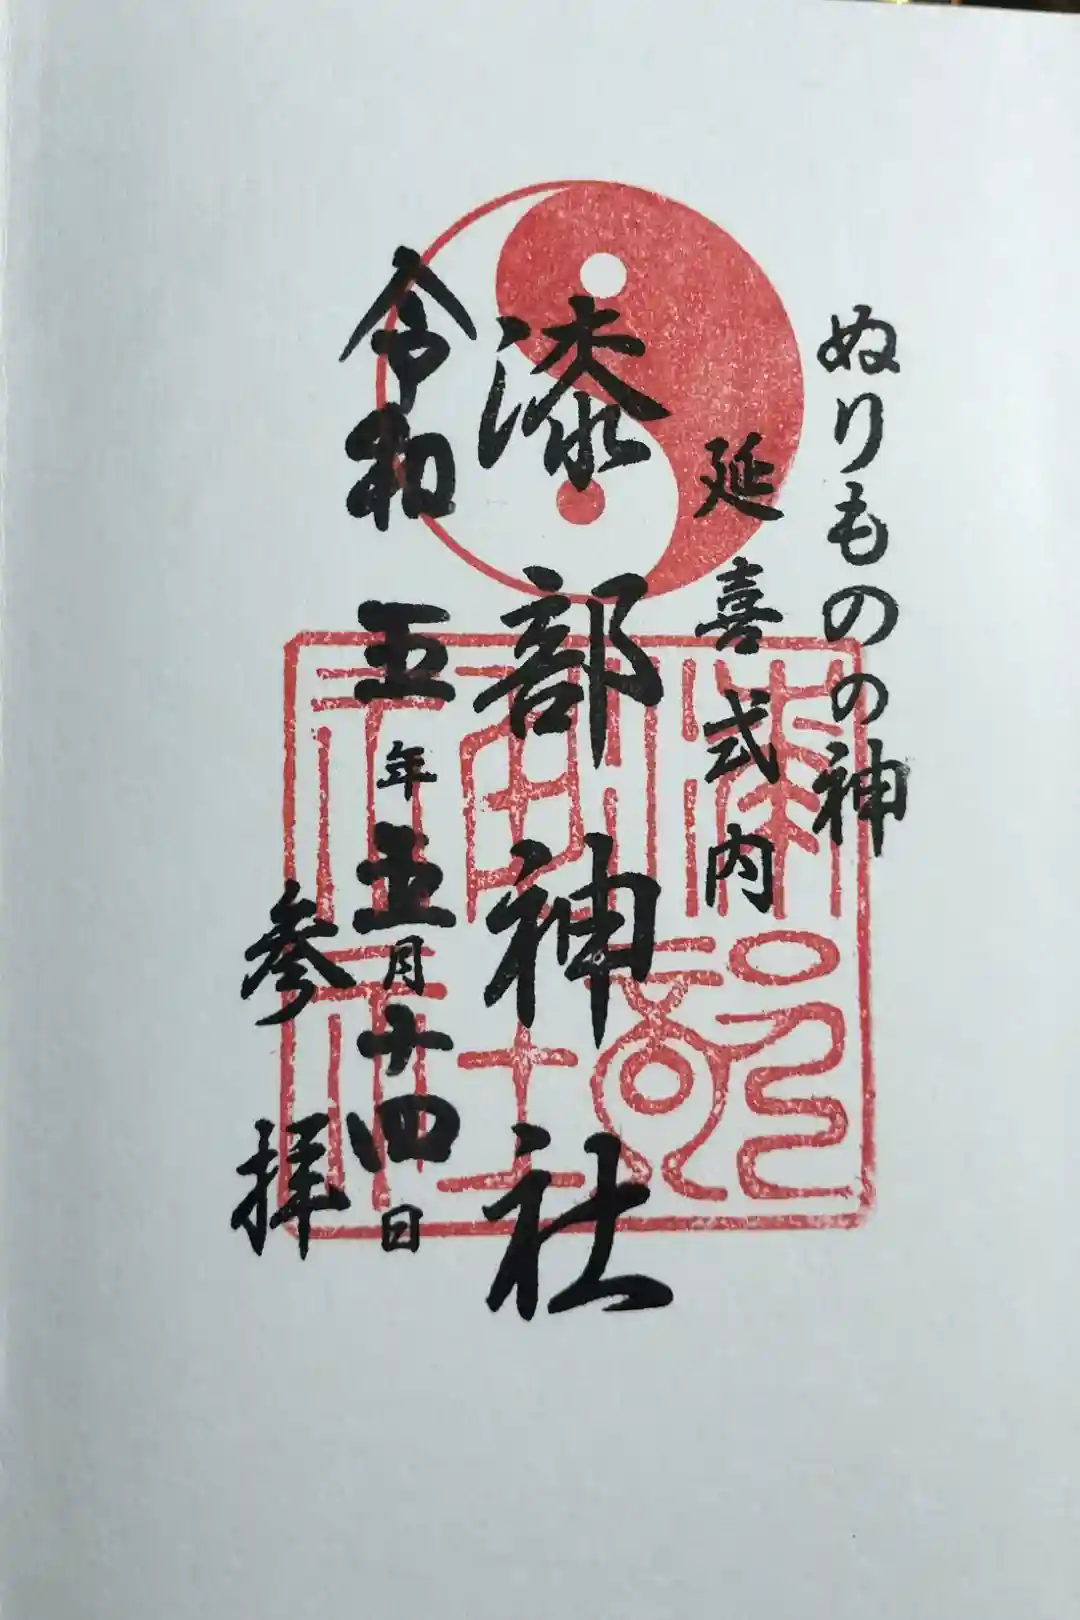 ぬりものの神
延喜式内
漆部神社
令和五年五月十四日
参拝